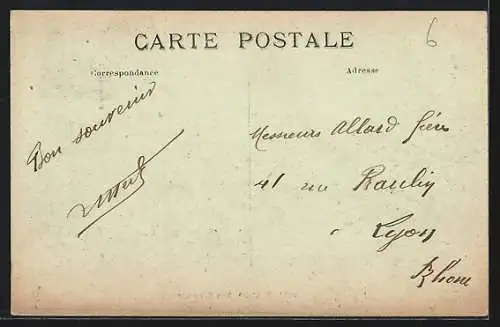 6
CARTE POSTALE
Correspondance
Adresse
Bon souvenir
Messieurs Allard frères
41 rue Raulin
Lyon
Rhone